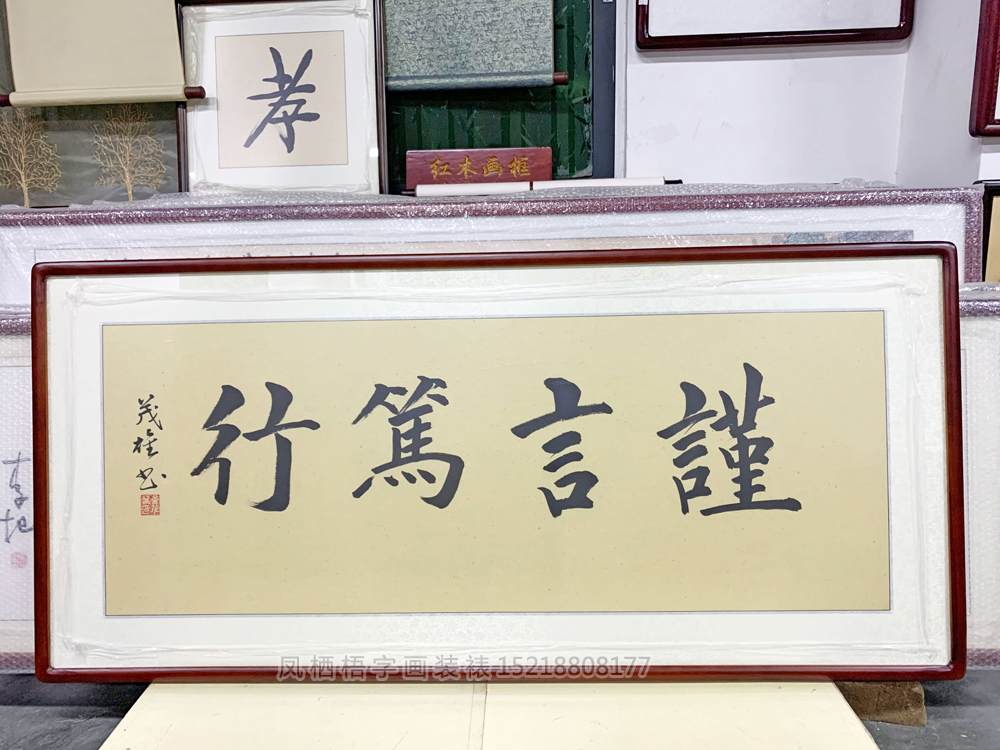 孝
红木画框
謹言篤行
茂雄书
凤栖梧字画装裱 15218808177